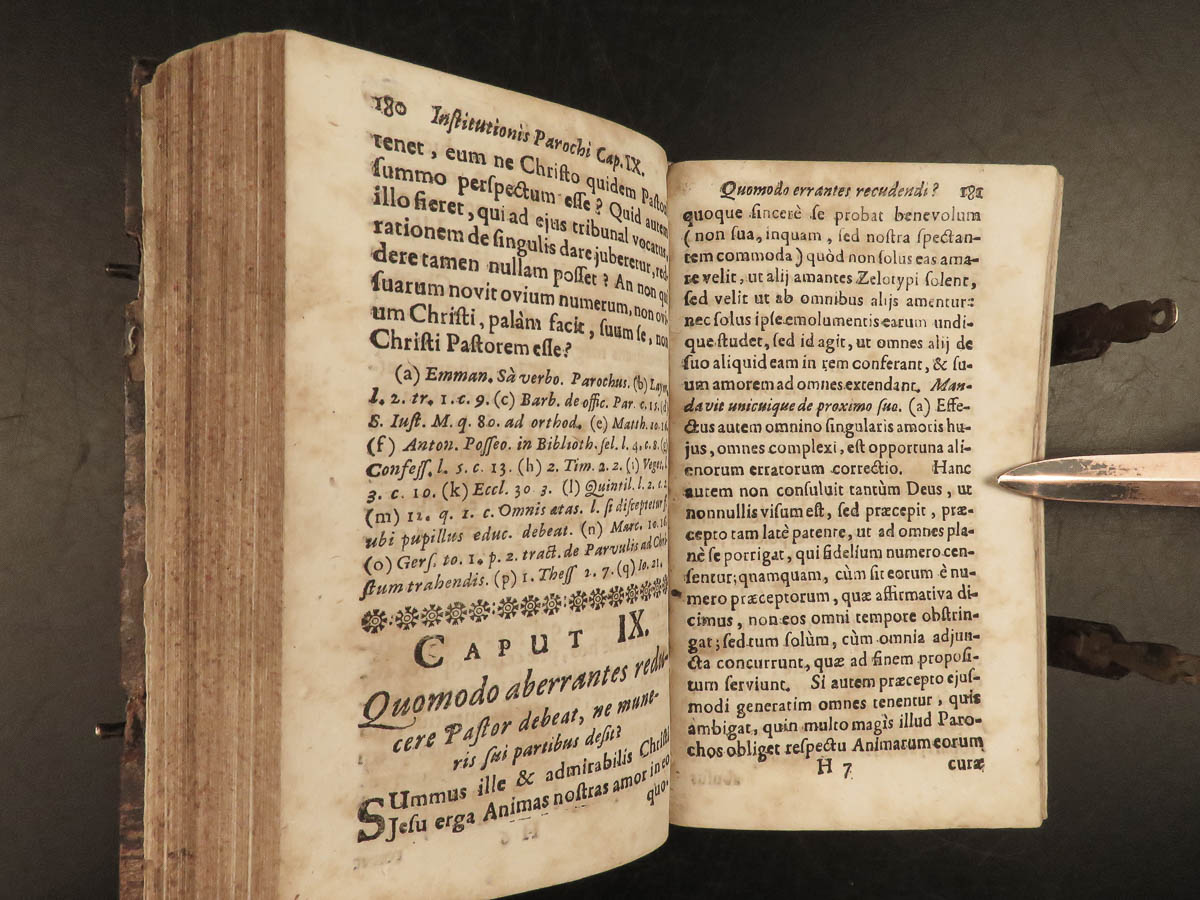 180 Inſtitutionis Parochi Cap. IX.
tenet, eum ne Chriſto quidem Paſtori
ſummo perſpectum eſſe? Quid autem
illo fieret, qui ad ejus tribunal vocatus,
rationem de ſingulis dare juberetur, red-
dere tamen nullam poſſet? An non qui
ſuarum novit ovium numerum, non ovi-
um Chriſti, palàm facit, ſuum ſe, non
Chriſti Paſtorem eſſe?
(a) Emman. Sà verbo. Parochus. (b) Laym.
l. 2. tr. 1. c. 9. (c) Barb. de offic. Par. c. 15. (d)
S. Iuſt. M. q. 80. ad orthod. (e) Matth. 10. 16.
(f) Anton. Poſſeo. in Biblioth. ſel. l. 4. c. 8. (g)
Confeſſ. l. 5. c. 13. (h) 2. Tim. 2. 2. (i) Veget. l.
3. c. 10. (k) Eccl. 30 3. (l) Quintil. l. 2. c. 2.
(m) 12. q. 1. c. Omnis ætas. l. ſi diſceptetur ſ.
ubi pupillus educ. debeat. (n) Marc. 10. 16.
(o) Gerſ. to. 1. p. 2. tract. de Parvulis ad Chri-
ſtum trahendis. (p) 1. Theſſ 2. 7. (q) Io. 21.
CAPUT IX.
Quomodo aberrantes redu-
cere Paſtor debeat, ne mune-
ris ſui partibus deſit?
SUmmus ille & admirabilis Chriſti
Jeſu erga Animas noſtras amor in eo
quo-
Quomodo errantes recudendi? 181
quoque ſincerè ſe probat benevolum
(non ſua, inquam, ſed noſtra ſpectan-
tem commoda) quòd non ſolus eas ama-
re velit, ut alij amantes Zelotypi ſolent,
ſed velit ut ab omnibus alijs amentur:
nec ſolus ipſe emolumentis earum undi-
que ſtudet, ſed id agit, ut omnes alij de
ſuo aliquid eam in rem conferant, & ſu-
um amorem ad omnes extendant. Man-
davit unicuique de proximo ſuo. (a) Effe-
ctus autem omnino ſingularis amoris hu-
jus, omnes complexi, eſt opportuna ali-
enorum erratorum correctio. Hanc
autem non conſuluit tantùm Deus, ut
nonnullis viſum eſt, ſed præcepit, præ-
cepto tam latè patente, ut ad omnes pla-
nè ſe porrigat, qui fidelium numero cen-
ſentur; quamquam, cùm ſit eorum è nu-
mero præceptorum, quæ affirmativa di-
cimus, non eos omni tempore obſtrin-
gat; ſed tum ſolùm, cùm omnia adjun-
cta concurrunt, quæ ad finem propoſi-
tum ſerviunt. Si autem præcepto ejuſ-
modi generatim omnes tenentur, quis
ambigat, quin multo magis illud Paro-
chos obliget reſpectu Animarum eorum
H 7 curæ